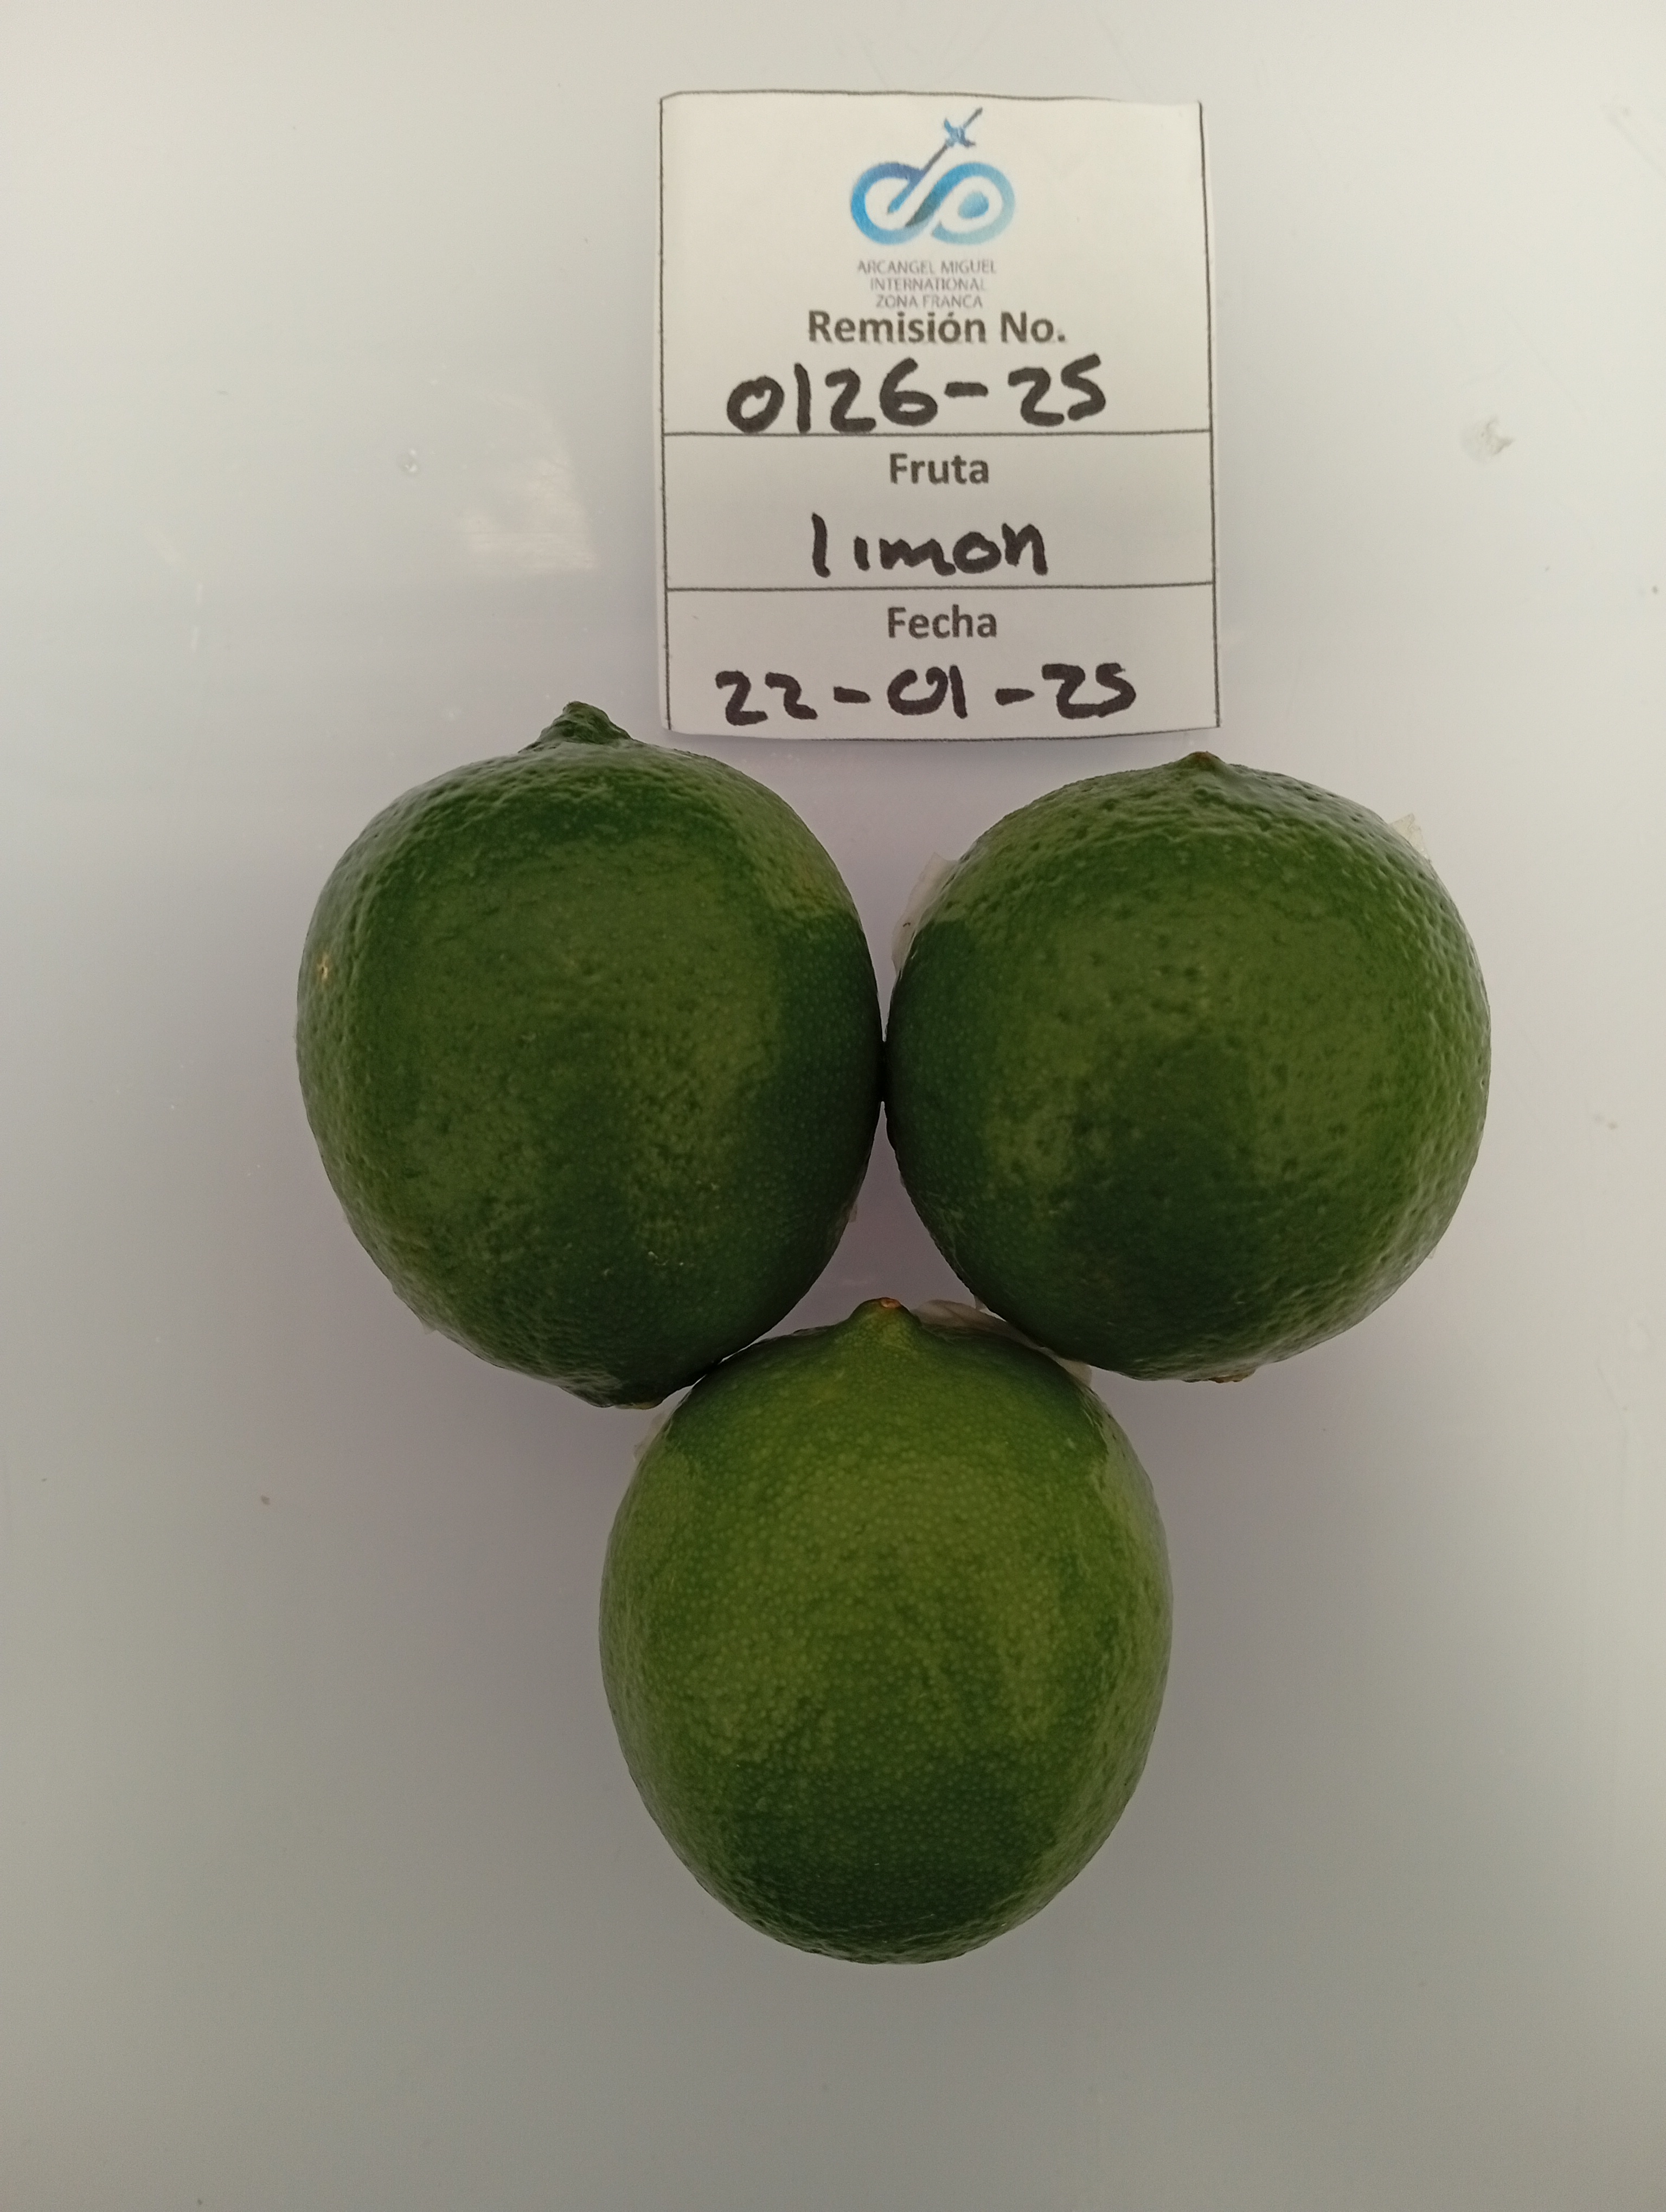 ARCANGEL MIGUEL
INTERNATIONAL
ZONA FRANCA
Remisión No.
0126-25
Fruta
limon
Fecha
22-01-25